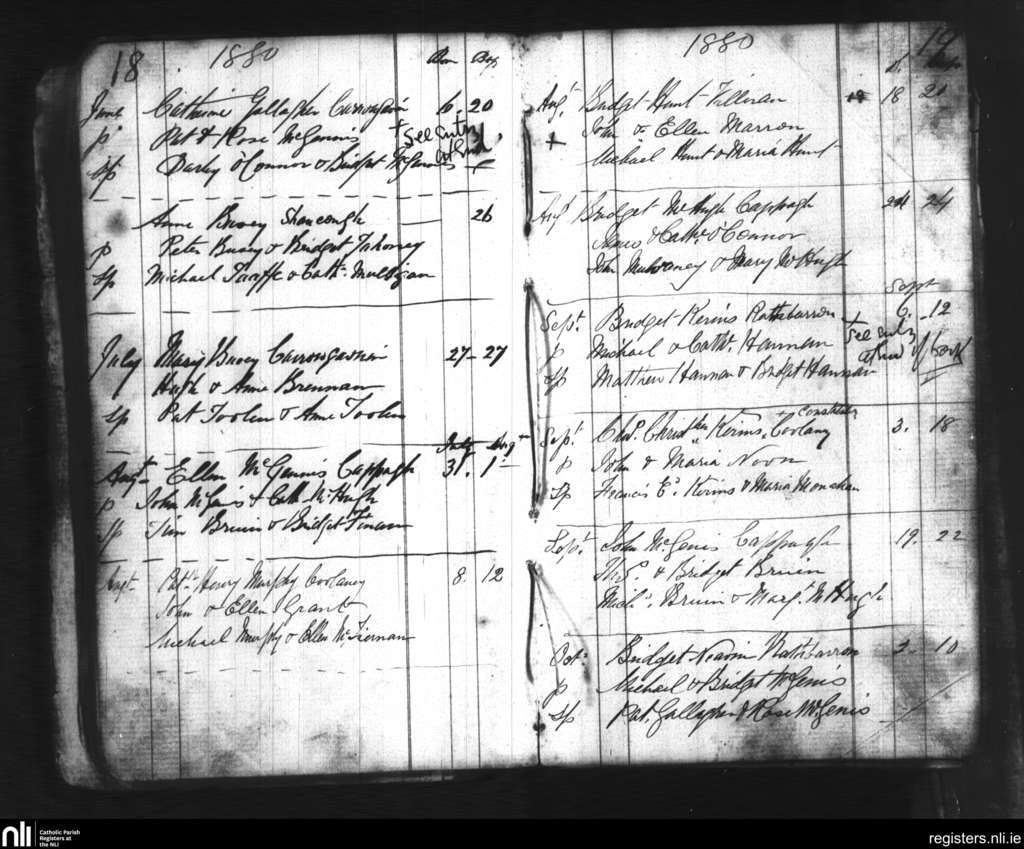 18 1880
Born Bap
June Catherine Gallagher Carrowgavin 6. 20
p Pat & Rose McGennis + See entry
sp Darby O'Connor & Bridget McGennis at end
Anne Busey 26
p Peter Busey & Bridget Tahoney
sp Michael Taaffe & Cath. Mulligan
July Mary Busey 27 - 27
Hugh & Anne Brennan
sp Pat Toolin & Anne Toolin
July Augt
Augt Ellen McGennis Cappagh 31. 1st
p John McGenis & Cath McHugh
sp Tim Bruin & Bridget Finan
Augt Patk Henry Murphy Coolaney 8. 12
John & Ellen Grant
Michael Murphy & Ellen McTiernan
1880 19
Augt Bridget Hunt 18 20
John & Ellen Marron
+ Michael Hunt & Maria Hunt
Augt Bridget McHugh Cappagh 24 24
James & Cathe O'Connor
John Mulvaney & Mary McHugh
Sept
Sept. Bridget Kerins Rathbarron 6. 12
p Michael & Cathe. Hannan + See entry
sp Matthew Hannan & Bridget Hannan at end of book
Constabler
Sept. Chas. Christher Kerins, Coolany 3. 18
p John & Maria Noon
sp Francis Kerins & Maria Monahan
Sept. John McGenis Cappagh 19. 22
Ths. & Bridget Bruin
Michl. Bruin & Margt. McHugh
Oct. Bridget Rathbarron 3. 10
p Michael & Bridget McGenis
sp Pat. Gallagher & Rose McGenis
nli Catholic Parish
Registers at
the NLI
registers.nli.ie